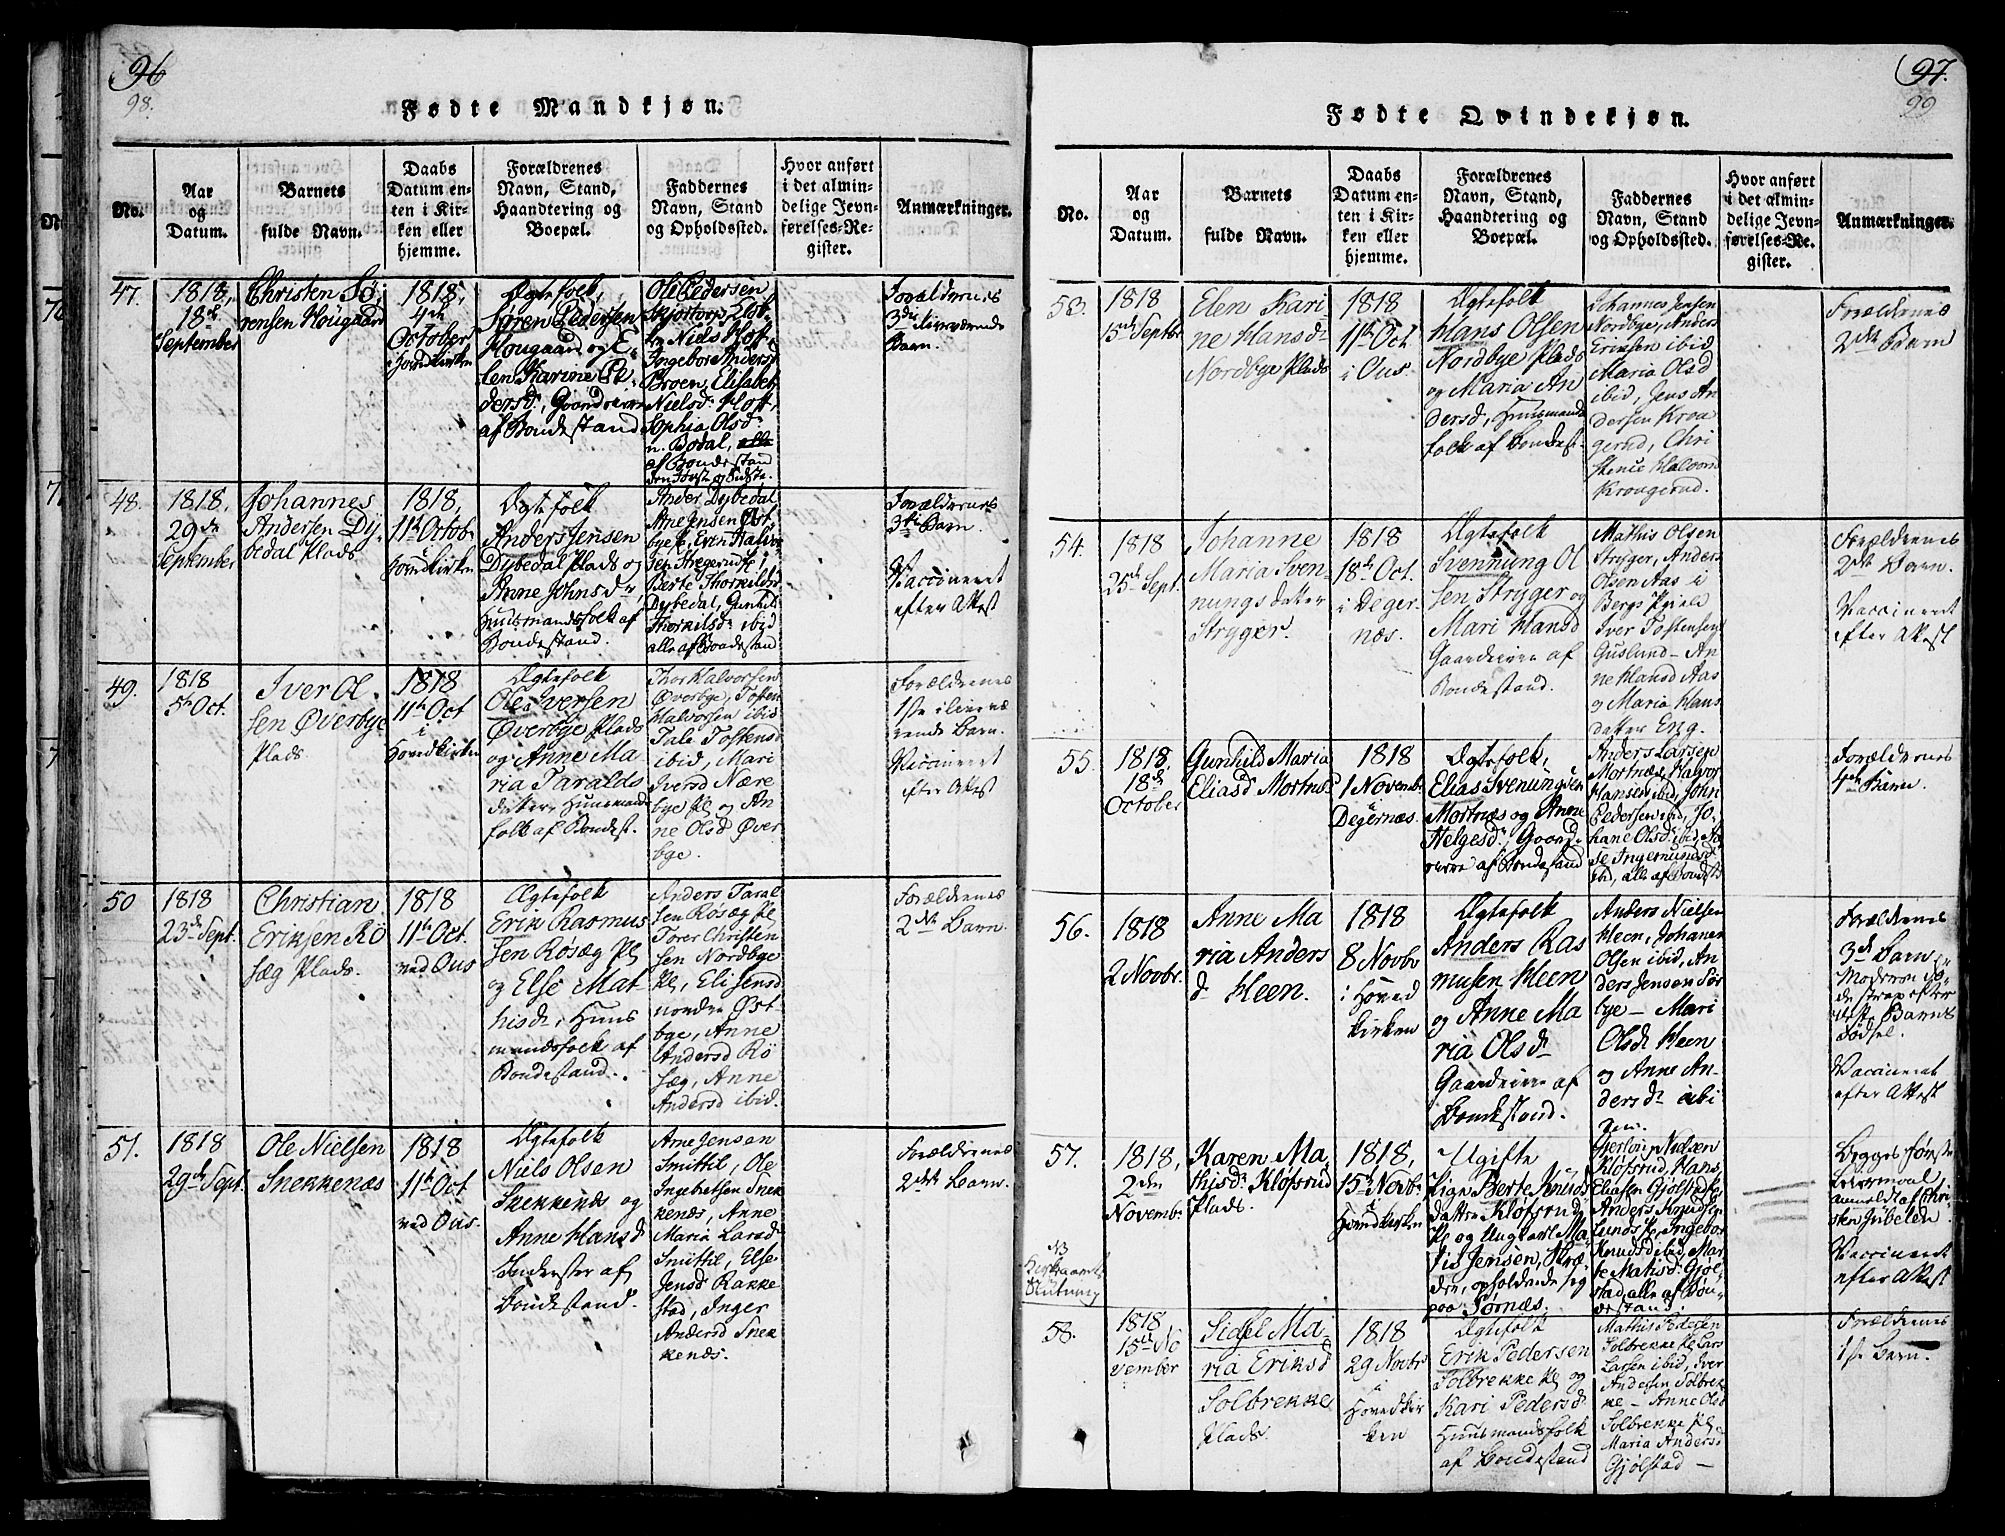 96
98.
Fødte Mandkjøn.
No.
Aar
og
Datum.
Barnets
fulde Navn.
Daabs
Datum en-
ten i Kir-
ken eller
hjemme.
Forældrenes
Navn, Stand,
Haandtering og
Boepæl.
Faddernes
Navn, Stand
og Opholdssted.
Hvor anført
i det almin-
delige Jevn-
førelses-Re-
gister.
Anmærkninger.
47.
1818,
18de
September
Christen Sø-
rensen Hougaard
1818,
4de
October,
i Hovedkirken
Ægtefolk,
Søren Pedersen
Hougaard og E-
len Karine Pe-
dersd., Gaardbrugere
af Bondestand
Ole Pedersen
Niels Hoff,
Ingeborg Anders
Broen, Elisabet
Nielsd. Hoff,
Sophia Olsd.
af Bondestand
Forældrenes
3die
Barn.
48.
1818,
29de
September
Johannes
Andersen Dy-
bedal Plads
1818,
11te Octob.
i
Hovedkirken
Ægtefolk
Anders Jensen
Dybedal Plads og
Anne Johnsdr,
Huusmandsfolk af
Bondestand.
Anders Dybedal
Arne Jensen Øst-
bye, Even Halvor
sen
Berte Thorkildsd.
Dybedal, Gunhild
Thorkilsd. ibid
alle af Bondestand
Forældrenes
3die Barn.
Vaccineret
efter Attest
49.
1818
5te Oct.
Iver Ol-
sen Øverbye
Plads.
1818
11te Oct
i
Hovedkirken
Ægtefolk
Ole Iversen
Øverbye Plads
og Anne Ma
ria Taralds
datter, Huusmands
folk af Bondest.
Thor Halvorsen
Øverbye, Tosten
Halvorsen ibid
Tale Tostensd
ibid, Mari
Iversd Nære
bye Pl og An
ne Olsd Øver
bye.
Forældrenes
1ste ilivevæ
rende Barn.
Vaccineret
efter Attest
50
1818
23de Sept.
Christian
Eriksen Rø
sæg Plads.
1818
11te Oct.
ved Ous
Ægtefolk
Erik Rasmus
sen Røsæg Pl
og Else Mat-
hisd., Huus
mandsfolk af
Bondestand.
Anders Taral
sen Røsæg Pl
Torer Christen
sen Nordbye
Pl, Eli Jensd
nordre Øst
bye, Anne
Andersd Rø
sæg, Anne
Andersd ibid.
Forældrenes
2det Barn.
51.
1818
29de Sept.
Ole Nielsen
Snekkenæs
1818
11te Oct
ved Ous.
Ægtefolk
Niels Olsen
Snekkenæs og
Anne Hansd
Inderster af
Bondestand.
Arne Jensen
Smittil, Ole
Ingebretsen Snek
kenæs, Anne
Maria Larsd
Smittil, Else
Jensd: Rakke
stad, Inger
Andersd Snek
kenæs.
Forældrenes
2det Barn.
97.
99
Fødte Qvindekjøn.
No.
Aar
og
Datum.
Barnets
fulde Navn.
Daabs
Datum en-
ten i Kir-
ken eller
hjemme.
Forældrenes
Navn, Stand,
Haandtering og
Boepæl.
Faddernes
Navn, Stand
og Opholdssted.
Hvor anført
i det almin-
delige Jevn-
førelses-Re-
gister.
Anmærkninger.
53.
1818
15de Septbr
Elen Kari
ne Hansdr
Nordbye Plads
1818
11te Oct
i Ous.
Ægtefolk
Hans Olsen
Nordbye Plads
og Maria An
dersd, Huusmands
folk af Bondest.
Johannes Jensen
Nordbye, Anders
Eriksen ibid
Maria Olsd
ibid, Jens An
dersen Kroa
gerud, Chri
stence Halvord
Krougerud.
Forældrenes
2det Barn
54.
1818
25de Sept.
Johanne
Maria Sven-
nungs datter
Stryger.
1818
18de Oct.
i Deger-
næs.
Ægtefolk
Svennung Ol
sen Stryger og
Mari Hansd
Gaardeiere af
Bondestand.
Mathis Olsen
Stryger, Anders
Olsen Aas i
Bergs Pgield
Iver Tostensen
Guslund - An
ne Hansd Aas
og Maria Hans
datter Eng.
Forældrenes
2det Barn.
Vaccineret
efter Attest
55.
1818,
18de
October
Gunhild Maria
Eliasd Mortnæs
1818
1 Novemb.
i
Degernæs.
Ægtefolk,
Elias Svenungsen
Mortnæs og Anne
Helgesd., Gaard-
eiere af Bondestand
Anders Larsen
Mortnæs, Halvor
Hansen ibid, John
Pedersen ibid, Jo-
hane Olsd. ibid,
Ingemunsd.
ibid, alle af Bondest.
Forældrenes
4de Barn.
56.
1818
2 Novbr.
Anne Ma
ria Anders
d. Heen.
1818
8 Novbr
i Hoved
kirken
Ægtefolk
Anders Ras
musen Heen
og Anne Ma
ria Olsdr
Gaardeiere af
Bondestand.
Anders Nielsen
Heen, Johanes
Olsen ibid, An
ders Jensen Sør
bye - Mari
Olsdr Heen
og Anne An
dersdr ibi
dem.
Forældrenes
3de Barn
Moderen dø-
de strax efter
dette Barns
Fødsel.
Vaccineret
efter Attest
57.
1818,
2den
Novembr
Karen Ma
thisd. Kløfsrud
Plads.
1818,
15de Novbr.
i
Hovedkirken
Ugifte
Pige Berte Jensd
datter Kløfsrud
Pl og Ungkarl Ma
tis Jensen,
opholdende sig
paa Sørnæs.
Nielsen
Kløfsrud, Hans
Eliasen Gjølstad
Anders Knudsen
Lunds Pl, Ingebor
Knudsd ibid, Mar
te Matisd. Gjøl-
stad, alle af Bon-
destand.
Begges første
Leiermaal
anmeldt af Chri
sten Jubelen.
Vaccineret
efter Attest
NB
58.
1818
15de No
vember
Sidsel Ma-
ria Eriksd
Solbrekke
Plads.
1818
29 Novbr
i
Hovedkir
ken
Ægtefolk
Erik Pedersen
Solbrekke Pl og
Kari Pedersd
Huusmandsfolk
af Bondestand
Mathis Pedersen
Solbrekke Pl, Lars
Larsen ibid, Iver
Andersen Solbrek
ke - Anne Olsd
Solbrekke Pl
Maria Andersd
Gjølstad -
Forældrenes
1ste Barn.